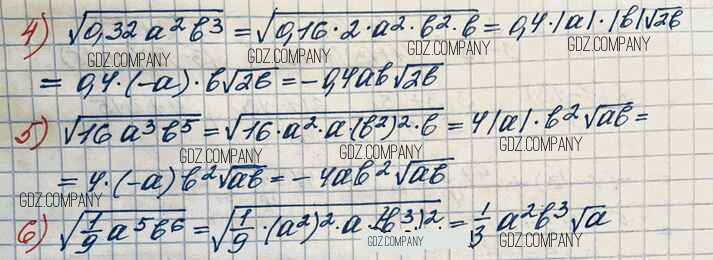 4) √(0,32a²b³) = √(0,16·2·a²·b²·b) = 0,4·|a|·|b|√(2b)
GDZ.COMPANY GDZ.COMPANY GDZ.COMPANY
= 0,4·(-a)·b√(2b) = -0,4ab√(2b)
GDZ.COMPANY GDZ.COMPANY
5) √(16a³b⁵) = √(16·a²·a(b²)²·b) = 4|a|·b²√(ab) =
GDZ.COMPANY GDZ.COMPANY GDZ.COMPANY
= 4·(-a)b²√(ab) = -4ab²√(ab)
GDZ.COMPANY GDZ.COMPANY
6) √(1/9 a⁵b⁶) = √(1/9·(a²)²·a·(b³)²) = 1/3 a²b³√a
GDZ.COMPANY GDZ.COMPANY GDZ.COMPANY